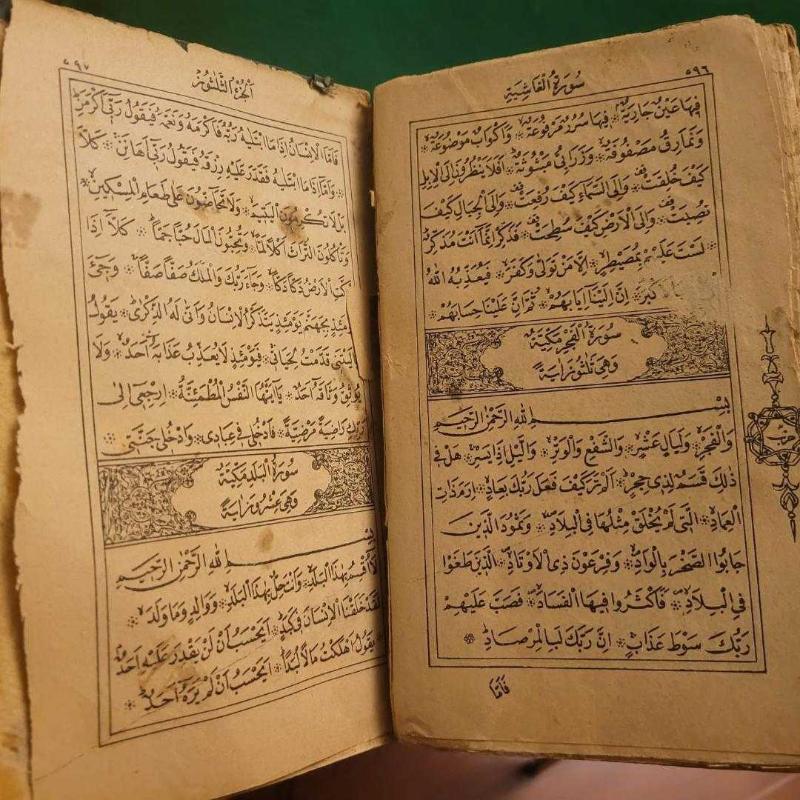 ٥٩٦
سورة الغاشية
فيها عين جارية فيها سرر مرفوعة واكواب موضوعة
ونمارق مصفوفة وزرابي مبثوثة افلا ينظرون الى الابل
كيف خلقت والى السماء كيف رفعت والى الجبال كيف
نصبت والى الارض كيف سطحت فذكر انما انت مذكر
لست عليهم بمصيطر الا من تولى وكفر فيعذبه الله
كبر ان الينا ايابهم ثم ان علينا حسابهم
سورة الفجر مكية
وهي ثلثون اية
بسم الله الرحمن الرحيم
والفجر وليال عشر والشفع والوتر والليل اذا يسر هل في
ذلك قسم لذي حجر الم تر كيف فعل ربك بعاد ارم ذات
العماد التي لم يخلق مثلها في البلاد وثمود الذين
جابوا الصخر بالواد وفرعون ذي الاوتاد الذين طغوا
في البلاد فاكثروا فيها الفساد فصب عليهم
ربك سوط عذاب ان ربك لبالمرصاد
فاما
حزب
٥٩٧
الجزء الثلثون
فاما الانسان اذا ما ابتليه ربه فاكرمه ونعمه فيقول ربي اكرمن
واما اذا ما ابتليه فقدر عليه رزقه فيقول ربي اهانن كلا
بل لا تكرمون اليتيم ولا تحاضون على طعام المسكين
وتاكلون التراث اكلا لما وتحبون المال حبا جما كلا اذا
دكت الارض دكا دكا وجاء ربك والملك صفا صفا وجيء
يومئذ بجهنم يومئذ يتذكر الانسان وانى له الذكرى يقول
يا ليتني قدمت لحياتي فيومئذ لا يعذب عذابه احد ولا
يوثق وثاقه احد يا ايتها النفس المطمئنة ارجعي الى
ربك راضية مرضية فادخلي في عبادي وادخلي جنتي
سورة البلد مكية
وهي عشرون اية
بسم الله الرحمن الرحيم
لا اقسم بهذا البلد وانت حل بهذا البلد ووالد وما ولد
لقد خلقنا الانسان في كبد ايحسب ان لن يقدر عليه احد
يقول اهلكت مالا لبدا ايحسب ان لم يره احد